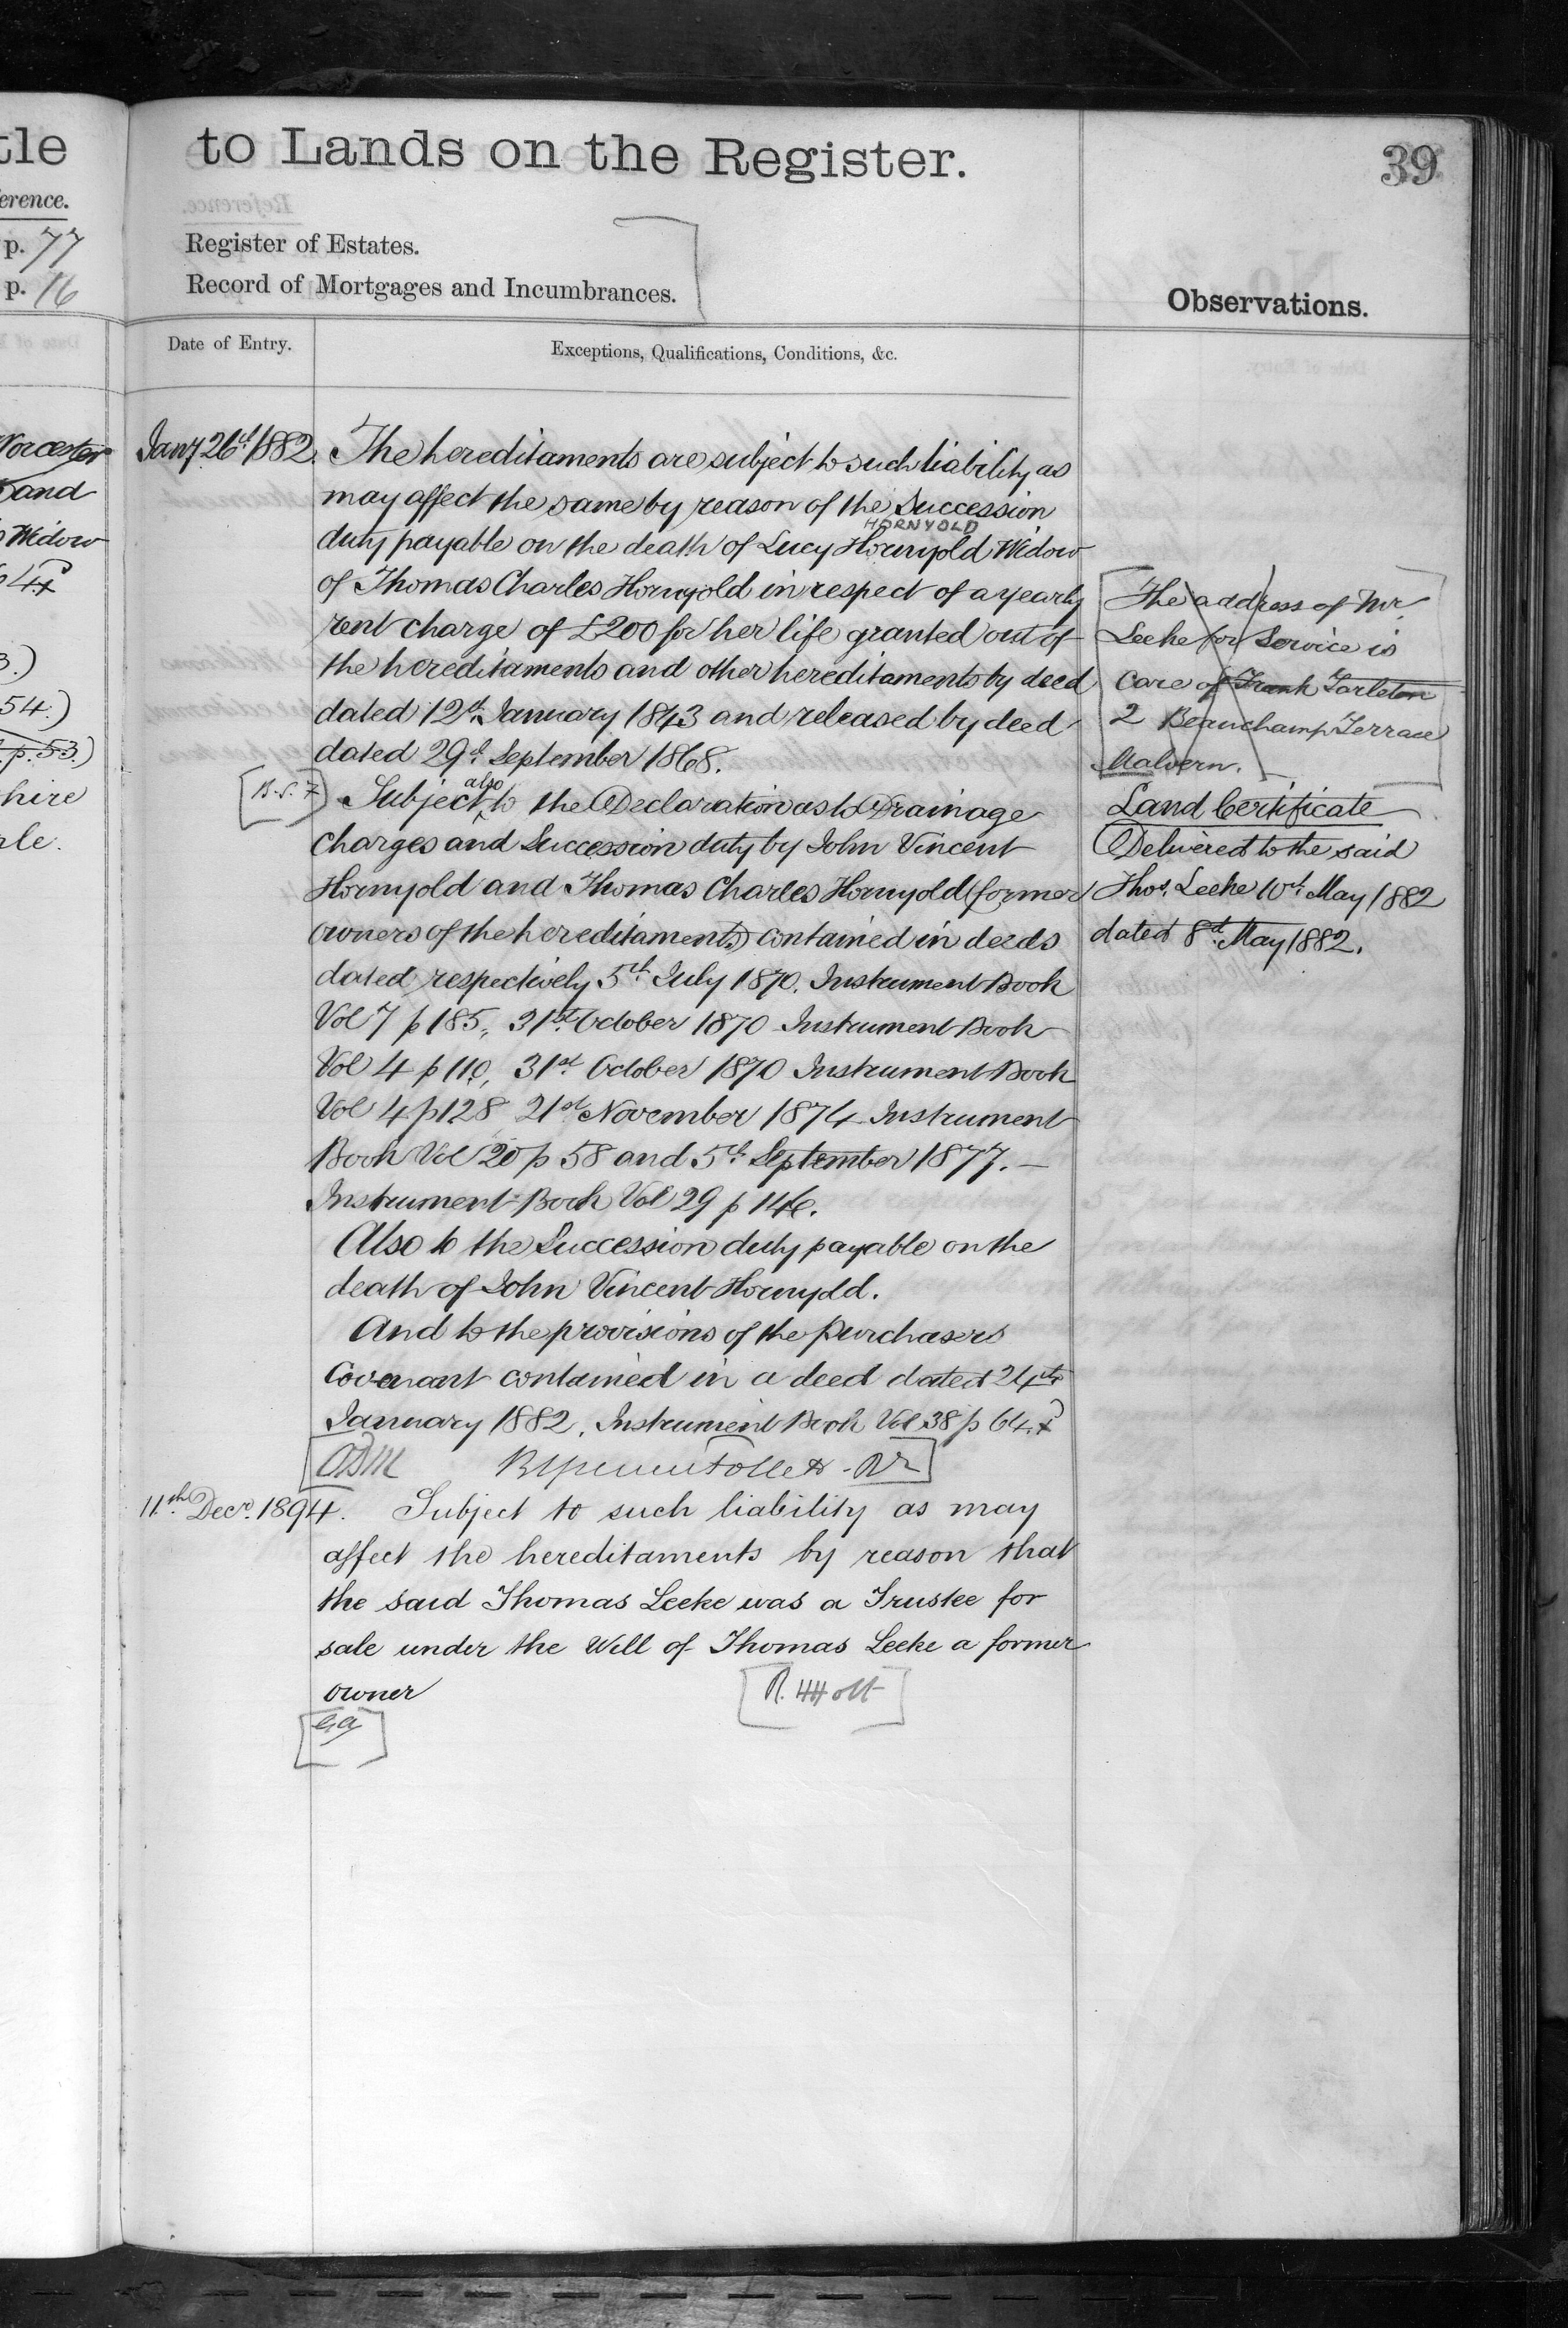 tle
erence.
p. 77
p. 16
Worcester
and
Widow
3.)
54.)
p. 53.)
hire
ale.
to Lands on the Register.
39
Register of Estates.
Record of Mortgages and Incumbrances.
Observations.
Date of Entry.
Exceptions, Qualifications, Conditions, &c.
Jany 26th 1882.
The hereditaments are subject to such liability as
may affect the same by reason of the Succession
HORNYOLD
duty payable on the death of Lucy Hornyold Widow
of Thomas Charles Hornyold in respect of a yearly
rent charge of £200 for her life granted out of
the hereditaments and other hereditaments by deed
dated 12th January 1843 and released by deed
dated 29th September 1868.
Subject also to the Declaration as to Drainage
charges and Succession duty by John Vincent
Hornyold and Thomas Charles Hornyold (former
owners of the hereditaments) contained in deeds
dated respectively 5th July 1870. Instrument Book
Vol 7 p 185, 31st October 1870 Instrument Book
Vol 4 p 110, 31st October 1870 Instrument Book
Vol 4 p 128 21st November 1874 Instrument
Book Vol 20 p 58 and 5th September 1877. —
Instrument Book Vol 29 p 146.
Also to the Succession duty payable on the
death of John Vincent Hornyold.
And to the provisions of the purchasers
Covenant contained in a deed dated 24th
January 1882, Instrument Book Vol 38 p 64.
11th Decr. 1894.
Subject to such liability as may
affect the hereditaments by reason that
the said Thomas Leeke was a Trustee for
sale under the Will of Thomas Leeke a former
owner
R. H Holt
The address of Mr
Leeke for Service is
care of Frank Tarleton
2 Beauchamp Terrace
Malvern.
Land Certificate
Delivered to the said
Thos. Leeke 10th May 1882
dated 8th May 1882.